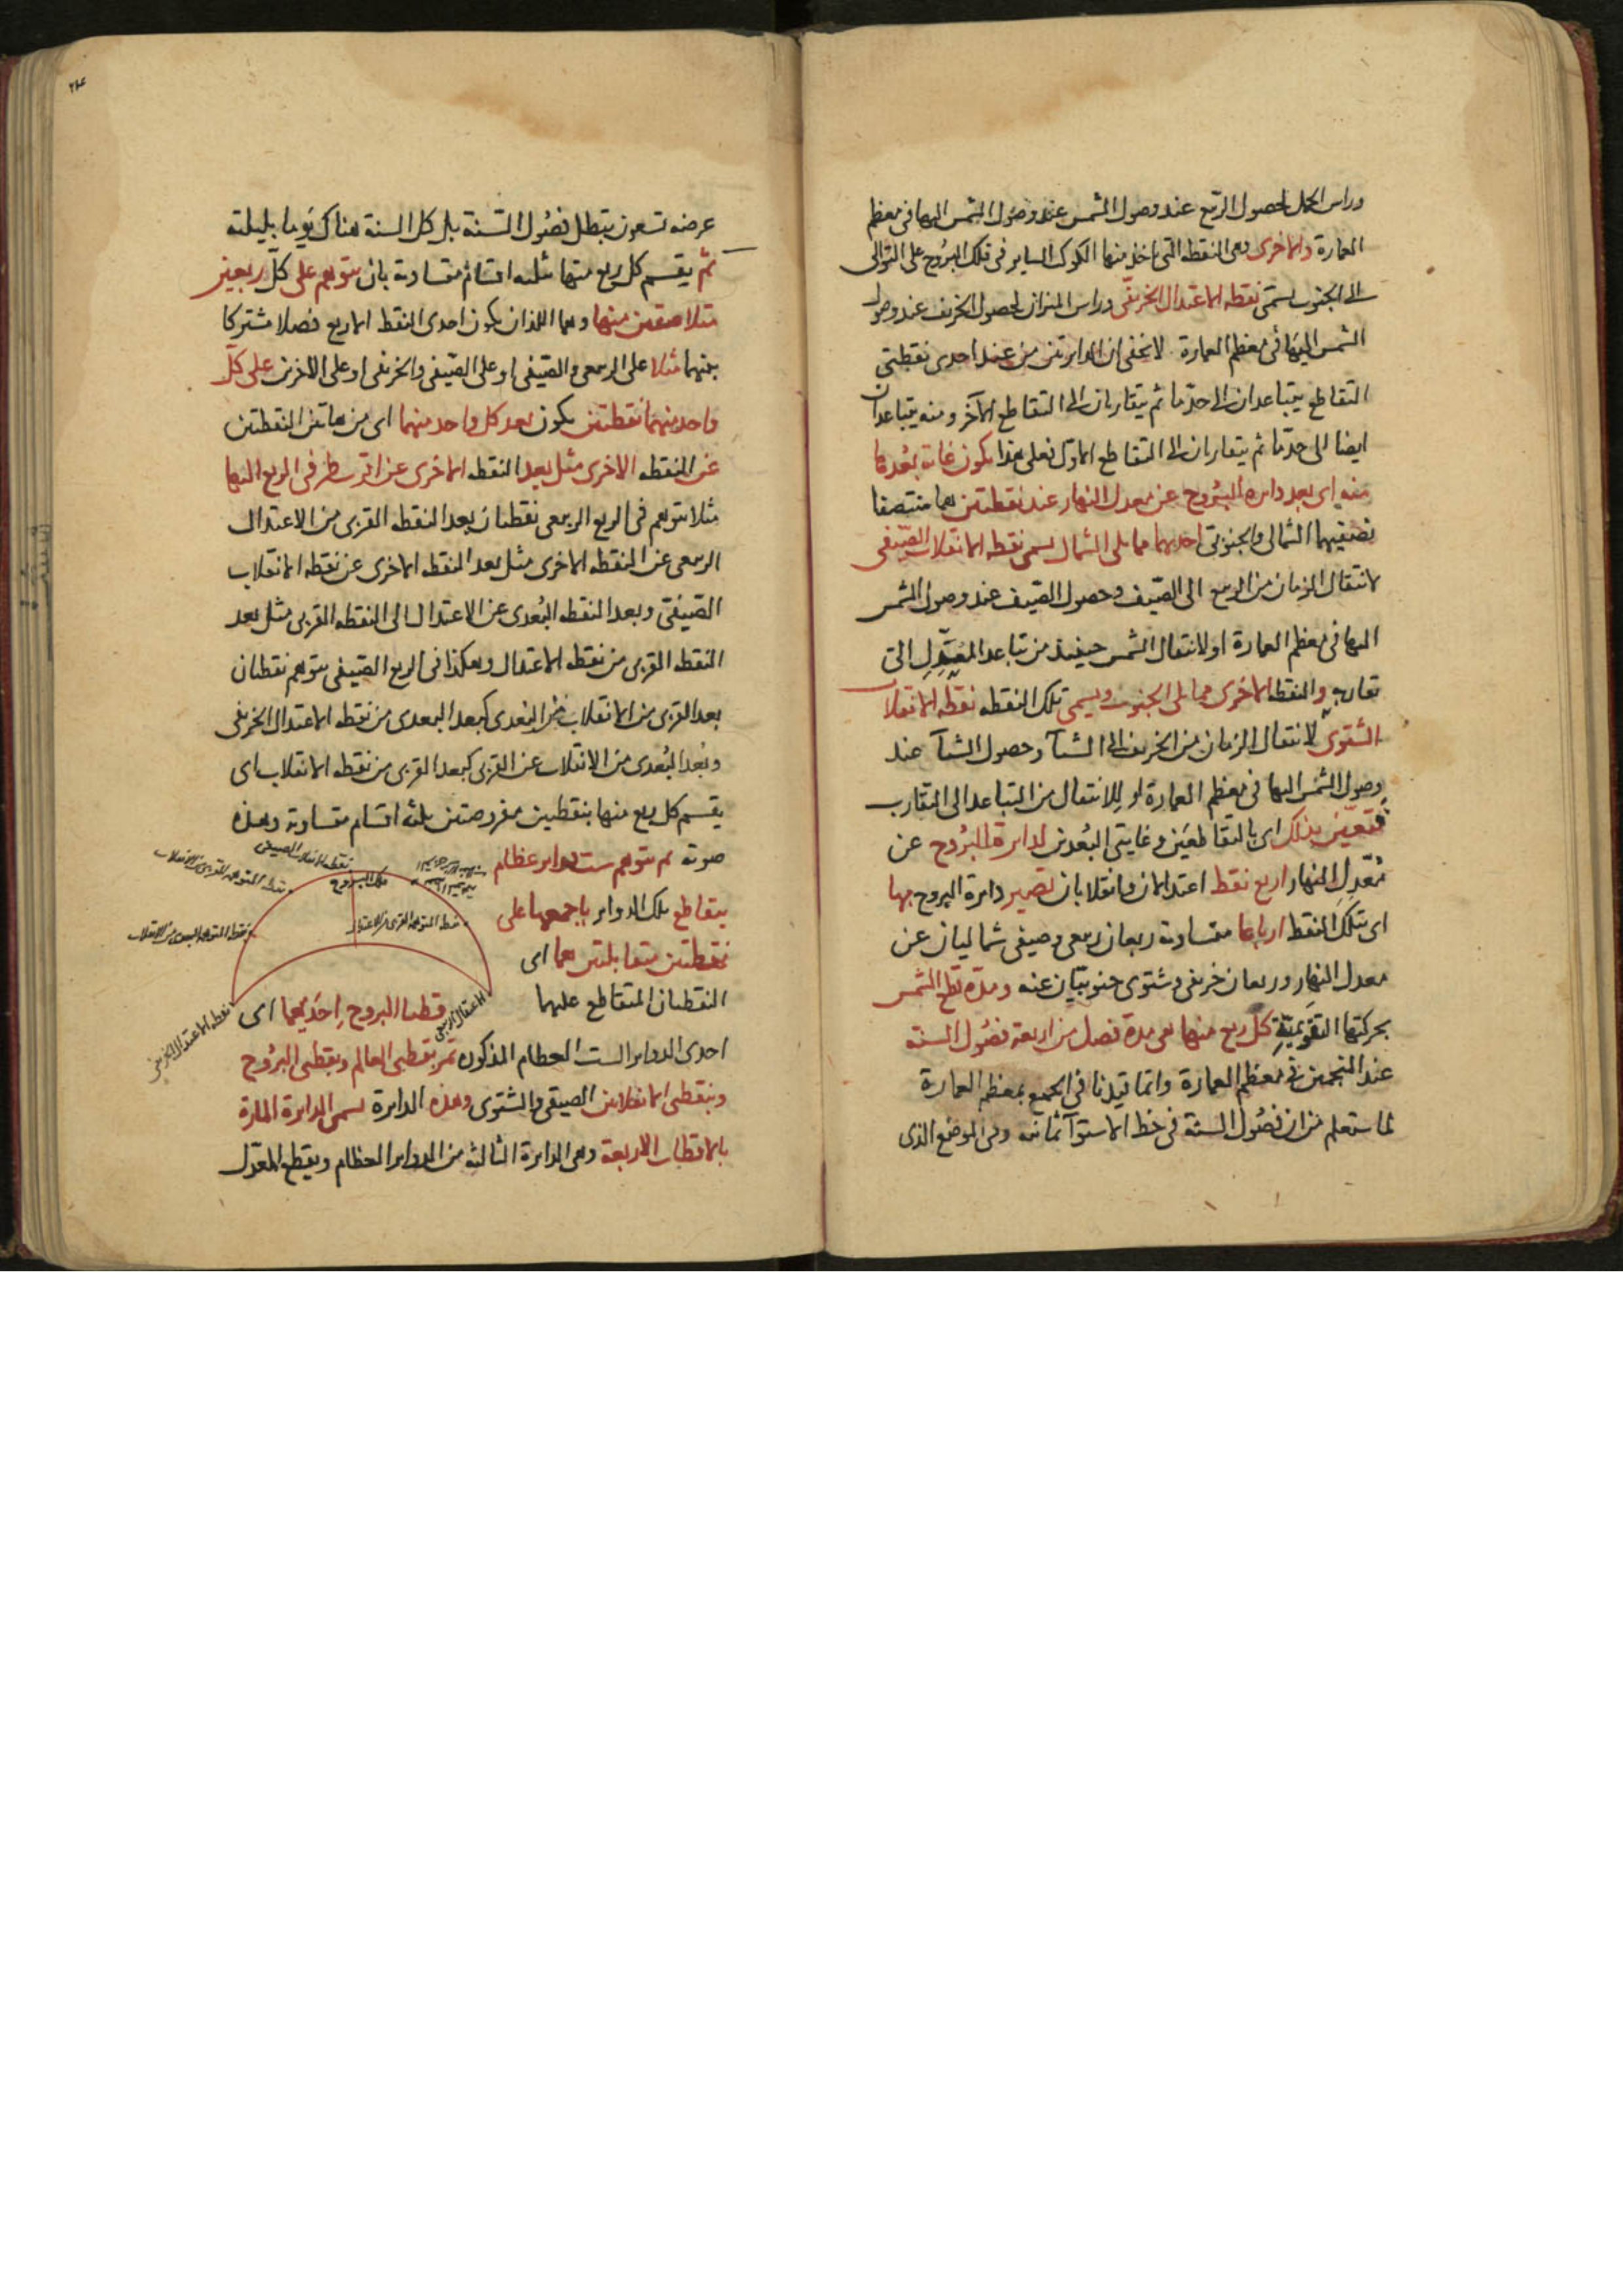 وراس الحمل لحصول الربيع عند وصول الشمس عند وصول الشمس اليها في معظم
العمارة والاخرى وهي النقطه التي ياخذ منها الكوكب الساير في فلك البروج على التوالي
الى الجنوب تسمى نقطه الاعتدال الخريفي وراس الميزان لحصول الخريف عند وصول
الشمس اليها في معظم العمارة لا يخفى ان الدايرتين من عند احدى نقطتي
التقاطع يتباعدان الى حد ما ثم يتقاربان الى التقاطع الآخر ومنه يتباعدان
ايضا الى حد ما ثم يتقاربان الى التقاطع الاول فعلى هذا يكون غاية بعدها
منه اي بعد دايره البروج عن معدل النهار عند نقطتين هما منتصفا
نصفيهما الشمالي والجنوبي احديهما مما يلي الشمال تسمى نقطه الانقلاب الصيفي
لانتقال الزمان من الربيع الى الصيف وحصول الصيف عند وصول الشمس
اليها في معظم العمارة او لانتقال الشمس حينئذ من تباعد المعدل الى
تقاربه والنقطه الاخرى مما يلي الجنوب ويسمى تلك النقطه نقطه الانقلاب
الشتوى لانتقال الزمان من الخريف الى الشتآ وحصول الشتآ عند
وصول الشمس اليها في معظم العمارة او للانتقال من التباعد الى التقارب
فتعين بذلك اى بالتقاطعين وغايتي البعدين لدايرة البروج عن
معدل النهار اربع نقط اعتدالان وانقلابان تصير دايرة البروج بها
اى بتلك النقط ارباعا متساوية ربعان ربيعي وصيفي شماليان عن
معدل النهار وربعان خريفي وشتوى جنوبيان عنه ومدة قطع الشمس
بحركتها التقويمية كل ربع منها هي مدة فصل من اربعة فصول السنة
عند المنجمين في معظم العمارة وانما قيدنا في الجميع بمعظم العمارة
لما ستعلم من ان فصول السنة في خط الاستوآ ثمانيه وفي الموضع الذى
عرضه تسعون يبطل فصول السنة بل كل السنة هناك يوما بليلته
ثم يقسم كل ربع منها ثلثه اقسام متساوية بان يتوهم على كل ربعين
متلاصقين منها وهما اللذان يكون احدى النقط الاربع فصلا مشتركا
بينهما مثلا على الربيعي والصيفي او على الصيفي والخريفي او على الاخرين على كل
واحد منهما نقطتين يكون بعد كل واحد منهما اى من هاتين النقطتين
عن النقطه الاخرى مثل بعد النقطه الاخرى عن اقرب طرفي الربع اليها
مثلا يتوهم في الربع الربيعي نقطتان بعد النقطه القربى من الاعتدال
الربيعي عن النقطه الاخرى مثل بعد النقطه الاخرى عن نقطه الانقلاب
الصيفي وبعد النقطه البعدى عن الاعتدال الى النقطه القربى مثل بعد
النقطه القربى من نقطه الاعتدال وهكذا في الربع الصيفي يتوهم نقطتان
بعد القربى من الانقلاب عن البعدى كبعد البعدى من نقطه الاعتدال الخريفي
وبعد البعدى من الانقلاب عن القربى كبعد القربى من نقطه الانقلاب اى
يقسم كل ربع منها بنقطتين مفروضتين بثلثه اقسام متساوية وهذه
صورته ثم يتوهم ست دواير عظام
يتقاطع تلك الدواير باجمعها على
نقطتين متقابلتين هما اى
النقطتان المتقاطع عليهما
قطبا البروج احديهما اى
احدى الدواير الست العظام المذكوره تمر بقطبي العالم وبقطبي البروج
وبنقطتي الانقلابين الصيفي والشتوى وهذه الدايرة تسمى الدايرة المارة
بالاقطاب الاربعة وهي الدايرة الثالثة من الدواير العظام ويقطع المعدل
نقطه الانقلاب الصيفي
فلك البروج
نقطه المتوهمه القربى من الانقلاب
نقطه المتوهمه البعدى من الانقلاب
نقطه المتوهمه القربى من الاعتدال
نقطه الاعتدال الخريفي
الاعتدال الربيعي